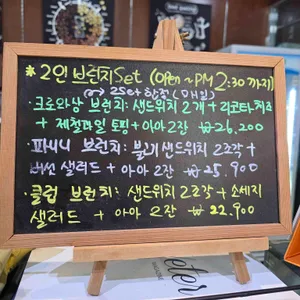 * 2인 브런치 Set (Open ~ PM 2:30 까지)
→ 2Set 한정 (매일)
· 크로와상 브런치: 샌드위치 2개 + 리코타치즈
+ 제철과일 토핑 + 아아 2잔 ₩26,200
· 파니니 브런치: 불고기 샌드위치 2조각 +
버섯 샐러드 + 아아 2잔 ₩25,900
· 클럽 브런치: 샌드위치 2조각 + 소세지
샐러드 + 아아 2잔 ₩22,900
eter